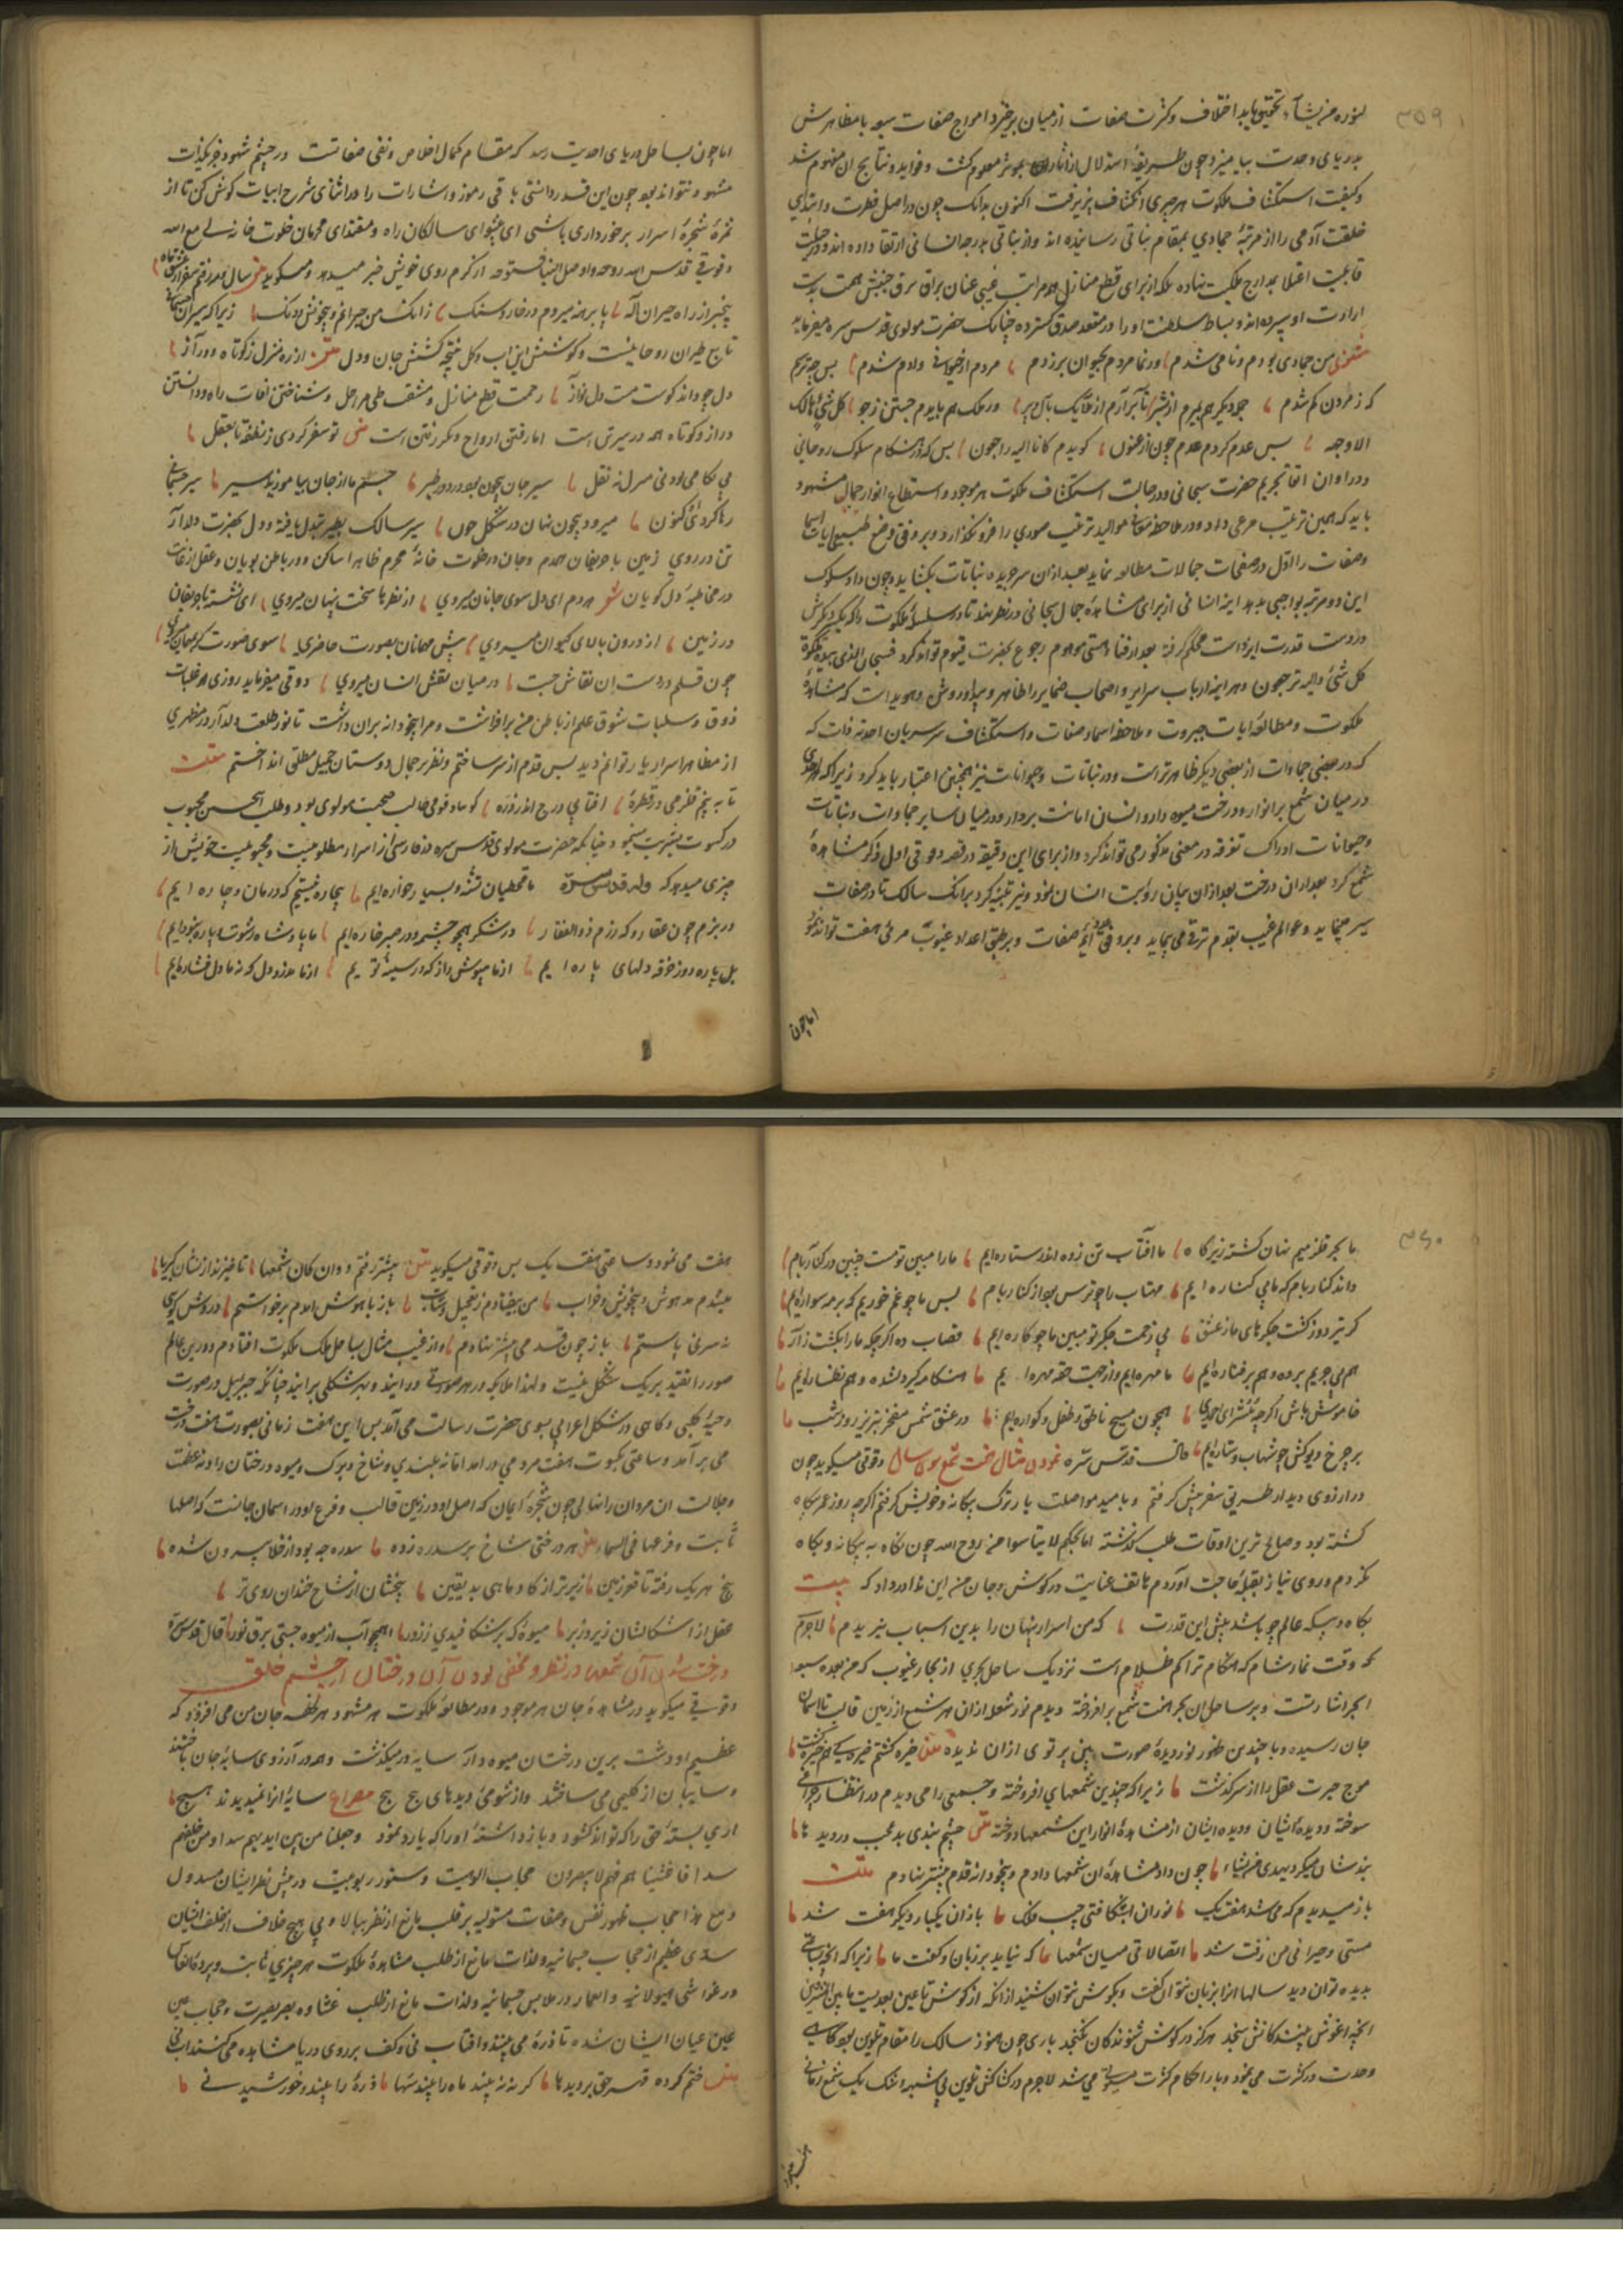 ۳۵۹
لنوره من یشآء تحقیق یابد اختلاف وکثرت صفات از میان برخیزد امواج صفات سبعه با مظاهرش
بدریای وحدت بیامیزد چون طریقهٔ استدلال از اثار بموثر معلوم کشت وفواید ونتایج ان مفهوم شد
وکیفیت استکشاف ملکوت هرچیزی انکشاف پذیرفت اکنون بدانک چون در اصل فطرت وابتدای
خلقت آدمی را از مرتبهٔ جمادی بمقام نباتی رسانیده اند واز نباتی بدرجه انسانی ارتقا داده اند ودر جبلت
قابلیت اعتلا بمدارج ملکیت نهاده بلکه از برای قطع منازل ومراتب غیبی عنان براق برق جنبش همت بدست
ارادت او سپرده اند وبساط سلطنت او را در مقعد صدق کسترده چنانک حضرت مولوی قدس سره میفرماید
مثنوی من جمادی بودم ونامی شدم ورنما مردم بحیوان برزدم مردم از حیوانی وآدم شدم پس چه ترسم
که ز مردن کم شدم جمله دیکر بمیرم از بشر تا برآرم از ملایک بال وپر وز ملک هم بایدم جستن زجو کل شیٔ هالک
الا وجهه پس عدم کردم عدم چون ارغنون کویدم کانا الیه راجعون پس که هنکام سلوک روحانی
ودر اوان تجرید حضرت سبحانی ودر حالت استکشاف ملکوت هر موجود واستطلاع انوار جمال مشهود
باید که همین ترتیب مرعی دارد ودر ملاحظه موالید ترتیب صوری را فرو نکذارد وبر وفق وضع طبیعی ایات اسما
وصفات را اول در صفحات جمادات مطالعه نماید بعد از ان سر جریده نباتات بکشاید وچون داد سلوک
این دو مرتبه بواجبی بدهد اینه انسانی از برای مشاهدهٔ جمال سبحانی در نظر نهد تا در سلسلهٔ ملکوت را که یکدیکرش
در دست قدرت ایزدست محکم کرفته بعد از فناء هستی موهوم رجوع بحضرت قیوم تواند کرد فسبحان الذی بیده ملکوت
کل شیٔ والیه ترجعون وهراینه ارباب سرایر واصحاب ضمایر را ظاهر وروشن وهویداست که مشاهدهٔ
ملکوت ومطالعهٔ ایات جبروت وملاحظهٔ اسما وصفات واستکشاف سر سریان احدیت ذات که
که در بعضی جمادات از بعضی دیکر ظاهرترست ودر نباتات وحیوانات نیز همچنین اعتبار باید کرد زیرا که
در میان شمع پر انوار ودرخت میوه دار وانسان امانت بردار ودر میان سایر جمادات ونباتات
وحیوانات ادراک تفرقه در معنی مذکور می تواند کرد واز برای این دقیقه در قصه دقوقی اول ذکر مشاهدهٔ
شمع کرد بعد از ان درخت بعد از ان بیان رویت انسان نمود ونیز تنبیه کرد بر انک سالک تا در صفات
سیر مینماید وعوالم غیب بقدم ترقی می پیماید وبر وفق صفات وبر طبق اعداد غیوب مرئی هفت تواند نمود
اما چون
اما چون بساحل دریای احدیت رسد که مقام کمال اخلاص ونفی صفاتست در چشم شهود جز یک ذات
مشهود نتواند بود چون این قدر دانستی باقی رموز واشارات را در اثنای شرح ابیات کوش کن تا از
ثمرهٔ شجرهٔ اسرار برخورداری باشی ای پیشوای سالکان راه ومقتدای محرمان خلوت خانهٔ لی مع الله
دقوقی قدس الله روحه واوصل الینا فتوحه از کرم روی خویش خبر میدهد ومیکوید متن سال ومه رفتم سفر از عشق ماه
بیخبر از راه حیران اله پا برهنه میروم در خار وسنک زانک من حیرانم وبیخویش ودنک زیرا که سیران جسمانی
تابع طیران روحانیست وکوشش این اب وکل نتیجه کشش جان ودل متن از ره ومنزل ز کوتاه ودراز
دل چه داند کوست مست دلنواز زحمت قطع منازل ومشقت طی مراحل وشناختن افات راه ودانستن
دراز وکوتاه همه در سیر تن است اما رفتن ارواح دکر رفتن است متن تو سفر کردی ز نطفه تا بعقل
نی بکامی بود نی منزل نه نقل سیر جان بیچون بود در دور ودیر جسم ما از جان بیاموزید سیر سیر جسمانه
رها کرد او کنون میرود بیچون نهان در شکل چون سیر سالک بطیر تبدل یافته ودل بحضرت دلدار
تن در روی زمین با حریفان همدم وجان در خلوت خانهٔ محرم ظاهرا ساکن ودر باطن پویان وعقل از غایت
در مخاطبهٔ دل کویان شعر هر دم ای دل سوی جانان میروی از نظرها سخت پنهان میروی ای نشسته با حریفان
در زمین از درون بالای کیوان میروی پیش مهمانان بصورت حاضری سوی صورتکر مهمان میروی
چون قلم در دست ان نقاش چست در میان نقش انسان میروی دقوقی میفرماید روزی از غلبات
ذوق وسلبات شوق علم از باطن من برافراشت ومرا بیخودانه بران داشت تا نور طلعت دلدار در مظهری
از مظاهر اسرار یار توانم دید پس قدم از سر ساختم ونظر بر جمال دوستان جمیل مطلق انداختم مثنوی
تا ببینم قلزمی در قطرهٔ افتابی درج اندر ذرهٔ کویا دقوقی طالب صحبت مولوی بود وطلب حسن محبوب
در کسوت بشریت میجود چنانکه حضرت مولوی قدس سره در فارسی از اسرار مطلوبیت ومحبوبیت خویش از
چیزی میدهد که وله قدس سره ما قحطیان تشنه وبسیار خواره ایم بیچاره نیستیم که درمان وچاره ایم
در بزم چون عقار وکه رزم ذوالفقار در شکر همچو چشمه ودر صبر خاره ایم ما پادشاه رشوت باره نبوده ایم
بل پاره دوز خرقه دلهای پاره ایم از ما مپوش راز که در سینهٔ توییم از ما مدزد دل که نه ما دل فشاره ایم
۳۶۰
ما بحر قلزمیم نهان کشته زیر کاه یا آفتاب تن زده اندر ستاره ایم ما را مبین تو مست چنین در کنار بام
داند کنار بام که ما بی کناره ایم مهتاب را چه ترس بود از کنار بام پس ما چه غم خوریم که بر مه سواره ایم
کر تیر دوز کشت جکرهای ما ز عشق بی زحمت جکر تو ببین ما چه کاره ایم قصاب ده اکرچه که ما را بکشت زار
هم می چریم بر ده وهم بر قناره ایم ما مهره ایم واز جهت حقه مهره ایم هنکامه کیر دلشده وهم نظاره ایم
خاموش باش اکرچه ببشرای احمدی همچون مسیح ناطق وطفل وکواره ایم در عشق شمس مفخر تبریز روز وشب
بر چرخ دیوکش چو شهاب وستاره ایم قال قدس سره نمودن مثال هفت شمع سوی ساحل دقوقی میکوید چون
در ارزوی دیدار طریق سفر پیش کرفتم وبامید مواصلت یار ترک بیکانه وخویش کرفتم اکرچه روز عمر بیکاه
کشته بود وصالح ترین اوقات طلب کذشته اما بحکم لا تیاسوا من روح الله چون نکاه به بیکانه وبیکاه
نکردم وروی نیاز بقبلهٔ حاجت آوردم هاتف عنایت در کوش جان من این ندا در داد که بیت
بکاه وبیکه عالم چه باشد پیش این قدرت که من اسرار پنهان را بدین اسباب نبریدم لاجرم
که وقت نماز شام که هنکام تراکم ظلام است نزدیک ساحل بحری از بحار غیوب که من بعده سبعة
ابحر اشارتست وبر ساحل ان بحر هفت شمع برافروخته دیدم نور شعله از ان هر شمع از زمین قالب تا آسمان
جان رسیده وبا چندین ظهور نور دیدهٔ صورت بین پرتوی از ان ندیده متن خیره کشتم خیرکی هم خیره کشت
موج حیرت عقل را از سر کذشت زیرا که چنین شمعهای افروخته وجمعی را می دیدم در انتظار چراغی
سوخته ودیدهٔ ایشان از مشاهدهٔ انوار این شمعها دوخته متن چشم بندی بد عجب بر دیدها
بندشان میکرد یهدی من یشاء چون داد مشاهدهٔ ان شمعها دادم وبیخودانه قدم پیشتر نهادم مثنوی
باز میدیدم که می شد هفت یک نور ان بشکافتی جیب فلک باز ان یکبار دیکر هفت شد
مستی وحیرانی من زفت شد اتصالاتی میان شمعها که نیاید بر زبان وکفت ما زیرا که انچه
بدیده توان دید سالها انرا بزبان نتوان کفت وبکوش نتوان شنید از انکه از کوش تا عین بعدیست مابین
انچه اغوش بیند کانش سنجد هرکز در کوش شنوندکان نکنجد باری چون هنوز سالک را مقام تلوین بود کاهی
وحدت در کثرت می نمود وباز احکام کثرت مستولی می شد لاجرم در کشاکش تلوین بی شبهه انک یک شمع زمانی
هفت می نمود وساعتی هفت یک پس دقوقی میکوید متن پیشتر رفتم دوان کان شمعها تا چه چیزند از نشان کبریا
میشدم مدهوش وبیخویش وخراب تا بیفتادم ز تعجیل وشتاب باز با هوش امدم برخواستم در روش کویی
نه سر نی پاستم باز چون قدمی پیشتر نهادم واز غیب مثال بساحل ملک ملکوت افتادم ودرین عالم
صور را تقید بر یک شکل نیست ولهذا ملایکه در هر صورتی درایند وبهر شکلی برایند چنانکه جبریل در صورت
دحیهٔ کلبی وکاهی در شکل اعرابی بسوی حضرت رسالت می آمد پس این هفت زمانی بصورت هفت درخت
می برآمد وساعتی بکسوت هفت مرد می درامد اما نه بلندی وشاخ وبرک ومیوه درختان را ونه عظمت
وجلالت ان مردان را نهایتی چون شجرهٔ ایمان که اصل او در زمین قالب وفرع او در اسمان جانست که اصلها
ثابت وفرعها فی السماء متن هر درختی شاخ بر سدره زده سدره چه بود از خلا بیرون شده
بیخ هر یک رفته تا قعر زمین زیرتر از کاو وماهی بد یقین بیخشان از شاخ خندان روی تر
عقل از اشکالشان زیر وزبر میوهٔ که برشکافیدی ز زور همچو آب از میوه جستی برق نور قال قدس سره
درخت شدن آن شمعها در نظر ومخفی بودن آن درختان از چشم خلق
دقوقی میکوید در مشاهدهٔ جان هر موجود ودر مطالعهٔ ملکوت هر مشهود هر لحظه جان من می افزود که
عظیم او دشت برین درختان میوه دار سایه ور میکذشت وهمه در آرزوی سایه جان باختند
وسایبان از کلیمی می ساختند واز شومی دیدهای پیچ پیچ مصراع سایهٔ انرا نمی دیدند هیچ
اری بستهٔ حق را که تواند کشود وباز داشتهٔ او را که یارد نمود وجعلنا من بین ایدیهم سدا ومن خلفهم
سدا فاغشیناهم فهم لا یبصرون حجاب الوهیت وستور ربوبیت در پیش نظر ایشان مسدول
ومع هذا حجاب ظهور نفس وصفات مستولیه بر قلب مانع از نظر ببالا وبی هیچ خلاف از خلف ایشان
سدی عظیم از حجاب جسمانیه ولذات مانع از طلب مشاهدهٔ ملکوت هر چیزی ثابت
در غواشی هیولانیه وانغمار در ملابس جسمانیه ولذات مانع از طلب غشاوه بصر بصیرت وحجاب عین
عین عیان ایشان شده تا ذرهٔ می بینند وافتاب نی وکف بر روی دریا مشاهده می کنند اب نی
متن ختم کرده قهر حق بر دیدها که نه بیند ماه را بیند سها ذرهٔ را بیند وخورشید نی